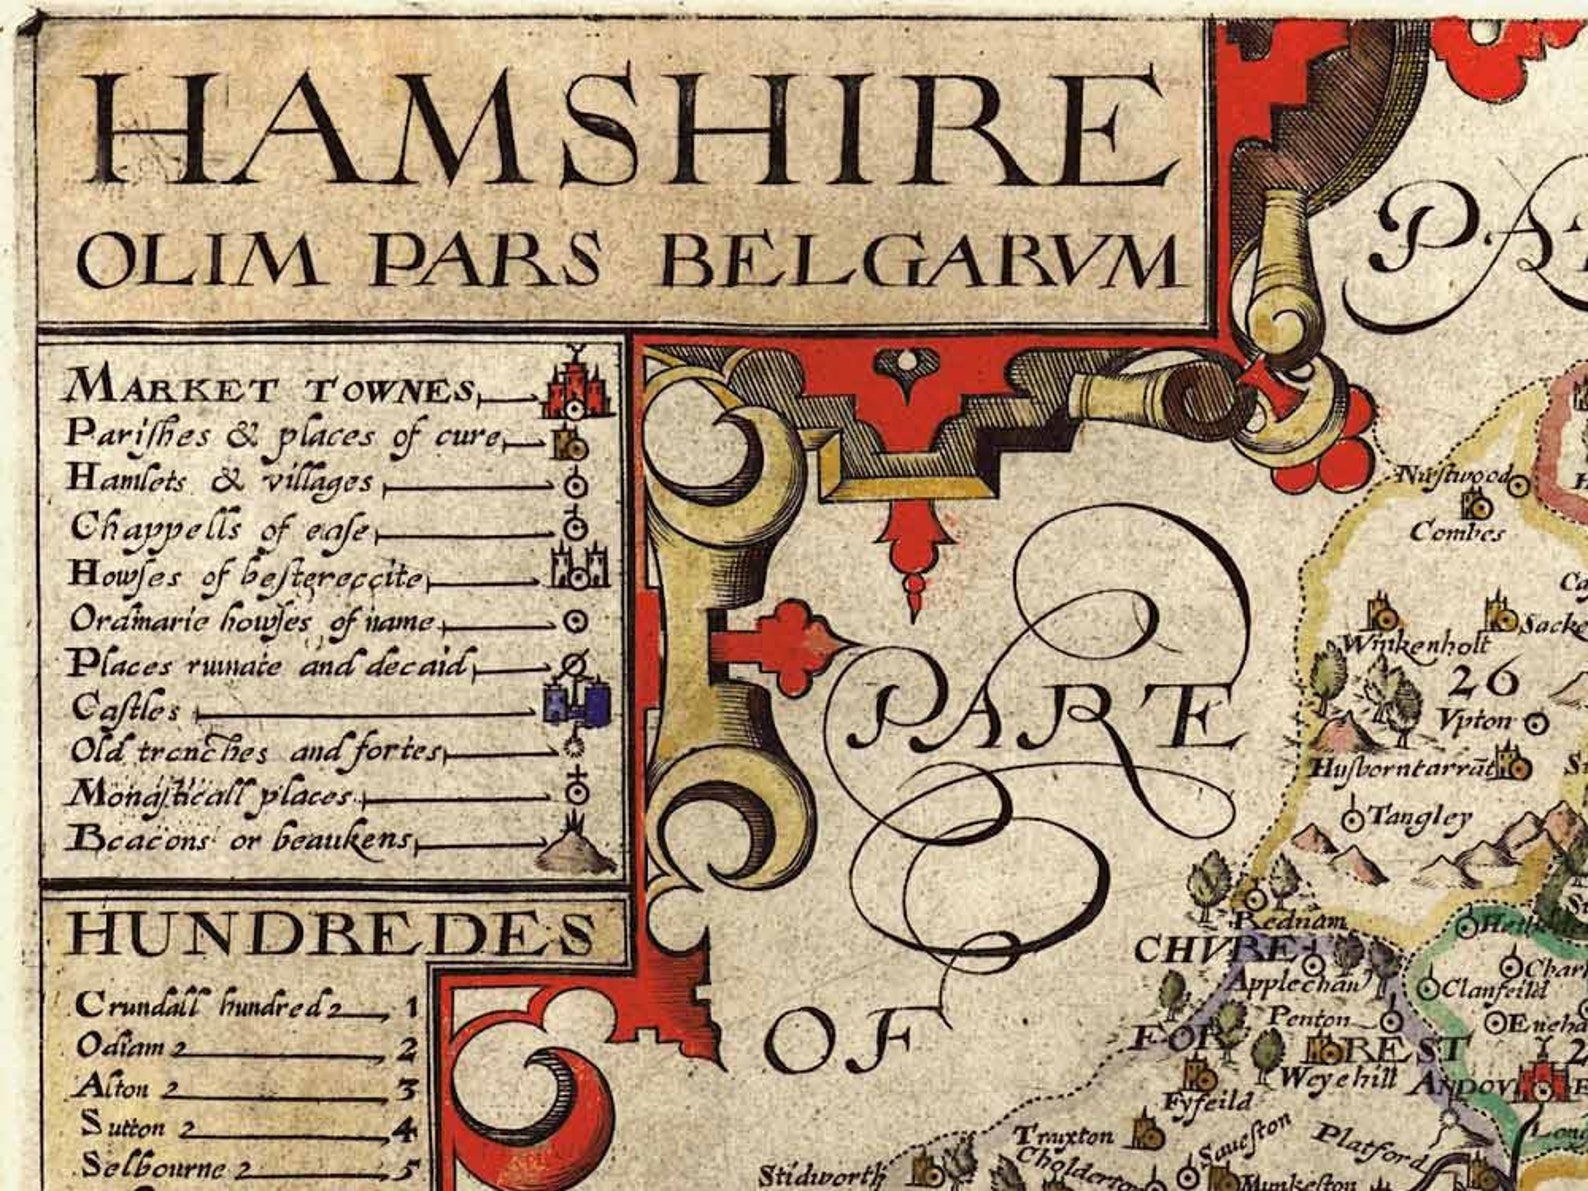 HAMSHIRE
OLIM PARS BELGARVM
MARKET TOWNES
Pariſhes & places of cure
Hamlets & villages
Chappells of eaſe
Howſes of beſtereccite
Ordinarie howſes of name
Places ruinate and decaid
Caſtles
Old trenches and fortes
Monaſticall places
Beacons or beaukens
HUNDREDES
Crundall hundred 2 1
Odiam 2 2
Alton 2 3
Sutton 2 4
Selbourne 2 5
PART
PARTE
OF
Combes
Winkenholt
26
Vpton
Huſborntarrāt
Tangley
Rednam
CHVRE
Applechau
Clanfeild
Penton
FOR REST
Weyehill
ANDOV
Fyfeild
Truxton
Saueſton
Platford
Cholderto
Stidworth
Munkeſton